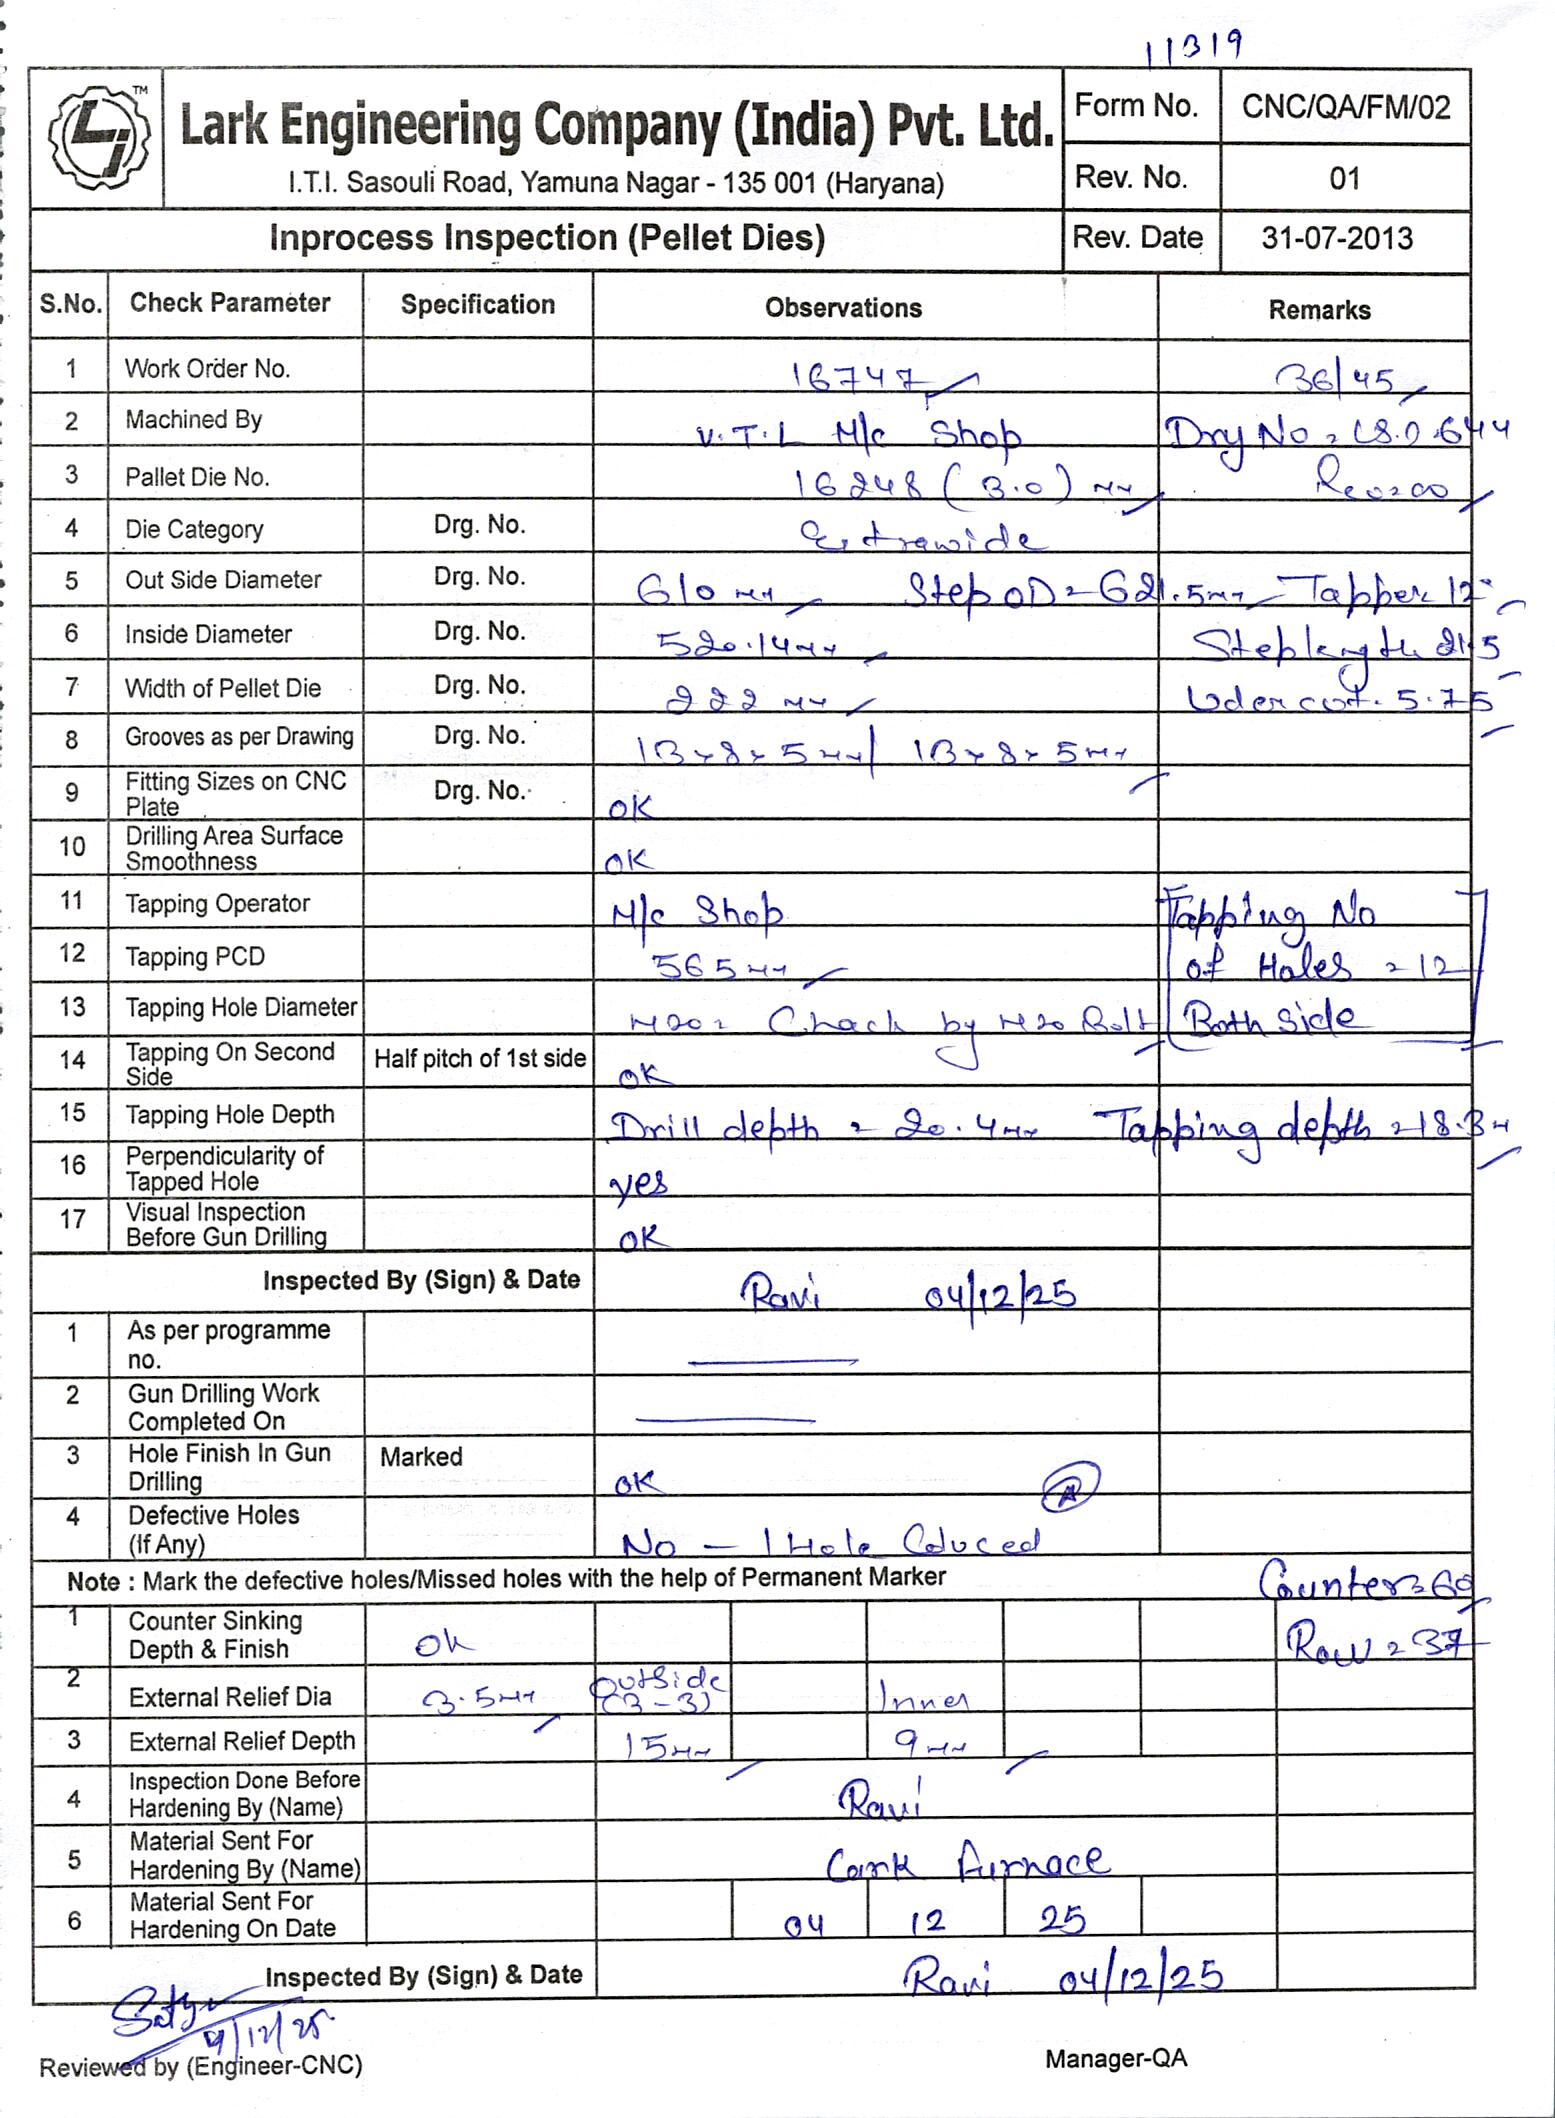 11319
TM
Lark Engineering Company (India) Pvt. Ltd.
I.T.I. Sasouli Road, Yamuna Nagar - 135 001 (Haryana)
Form No. CNC/QA/FM/02
Rev. No. 01
Inprocess Inspection (Pellet Dies) Rev. Date 31-07-2013
S.No. Check Parameter Specification Observations Remarks
1 Work Order No. 16747 36/45
2 Machined By V.T.L M/c Shop Drg No = LS.D.644
3 Pallet Die No. 16248 (3.0) mm Rev=00
4 Die Category Drg. No. Extrawide
5 Out Side Diameter Drg. No. 610 mm Step OD = 621.5mm Tapper 12°
6 Inside Diameter Drg. No. 520.14mm Step length 21.5
7 Width of Pellet Die Drg. No. 222 mm Udercut. 5.75
8 Grooves as per Drawing Drg. No. 13x8x5mm/ 13x8x5mm
9 Fitting Sizes on CNC Plate Drg. No. OK
10 Drilling Area Surface Smoothness OK
11 Tapping Operator M/c Shop Tapping No
12 Tapping PCD 565mm of Holes = 12
13 Tapping Hole Diameter M20 = Chack by M20 Bolt Both Side
14 Tapping On Second Side Half pitch of 1st side OK
15 Tapping Hole Depth Drill depth = 20.4mm Tapping depth = 18.3m
16 Perpendicularity of Tapped Hole yes
17 Visual Inspection Before Gun Drilling OK
Inspected By (Sign) & Date Ravi 04/12/25
1 As per programme no.
2 Gun Drilling Work Completed On
3 Hole Finish In Gun Drilling Marked OK
4 Defective Holes (If Any) No - 1 Hole
Note : Mark the defective holes/Missed holes with the help of Permanent Marker Counter=60
1 Counter Sinking Depth & Finish Ok Row = 37
2 External Relief Dia 3.5mm Outside (3-3) Inner
3 External Relief Depth 15mm 9mm
4 Inspection Done Before Hardening By (Name) Ravi
5 Material Sent For Hardening By (Name) Furnace
6 Material Sent For Hardening On Date 04 12 25
Inspected By (Sign) & Date Ravi 04/12/25
4/12/25
Reviewed by (Engineer-CNC) Manager-QA